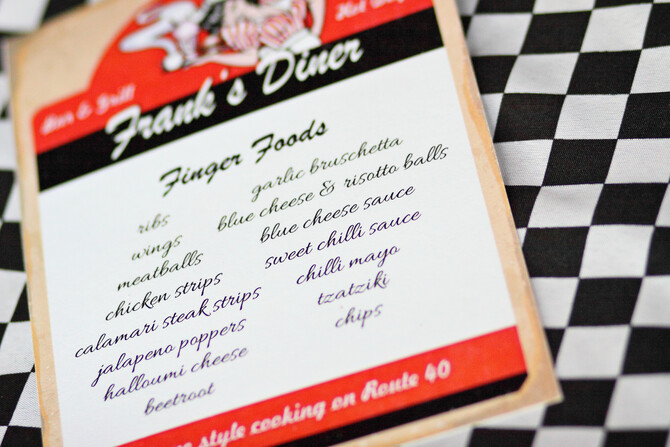 Hot
Bar & Grill
Frank's Diner
Finger Foods
ribs
wings
meatballs
chicken strips
calamari steak strips
jalapeno poppers
halloumi cheese
beetroot
garlic bruschetta
blue cheese & risotto balls
blue cheese sauce
sweet chilli sauce
chilli mayo
tzatziki
chips
style cooking on Route 40